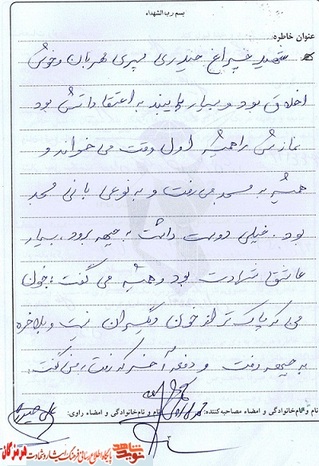 بسم رب الشهداء
عنوان خاطره:
شهید چراغ حیدری پسری مهربان و خوش
اخلاق بود و بسیار پایبند به اعتقاداتش بود
نمازش را همیشه اول وقت می خواند و
همیشه به مسجد می رفت و به نوعی بانی مسجد
بود. خیلی دوست داشت به جبهه برود، بسیار
عاشق شهادت بود و همیشه می گفت: خون
من که پاک تر از خون دیگران نیست و بلاخره
به جبهه رفت و دفعه آخر که رفت، می گفت:
نام و نام خانوادگی و امضاء مصاحبه کننده:
نام و نام خانوادگی و امضاء راوی:
نوید شاهد
پایگاه اطلاع رسانی فرهنگ ایثار و شهادت هرمزگان